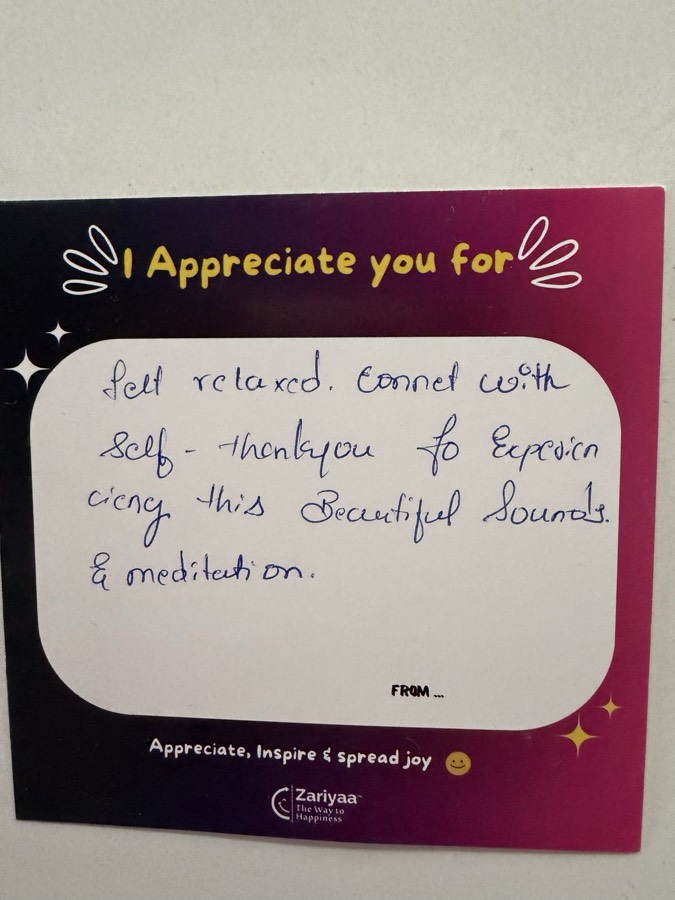 I Appreciate you for
felt relaxed. Connet with
Self - thankyou fo Experien
cieng this Beautiful Sounds.
& meditation.
FROM ...
Appreciate, Inspire & spread joy
Zariyaa™
The Way to
Happiness